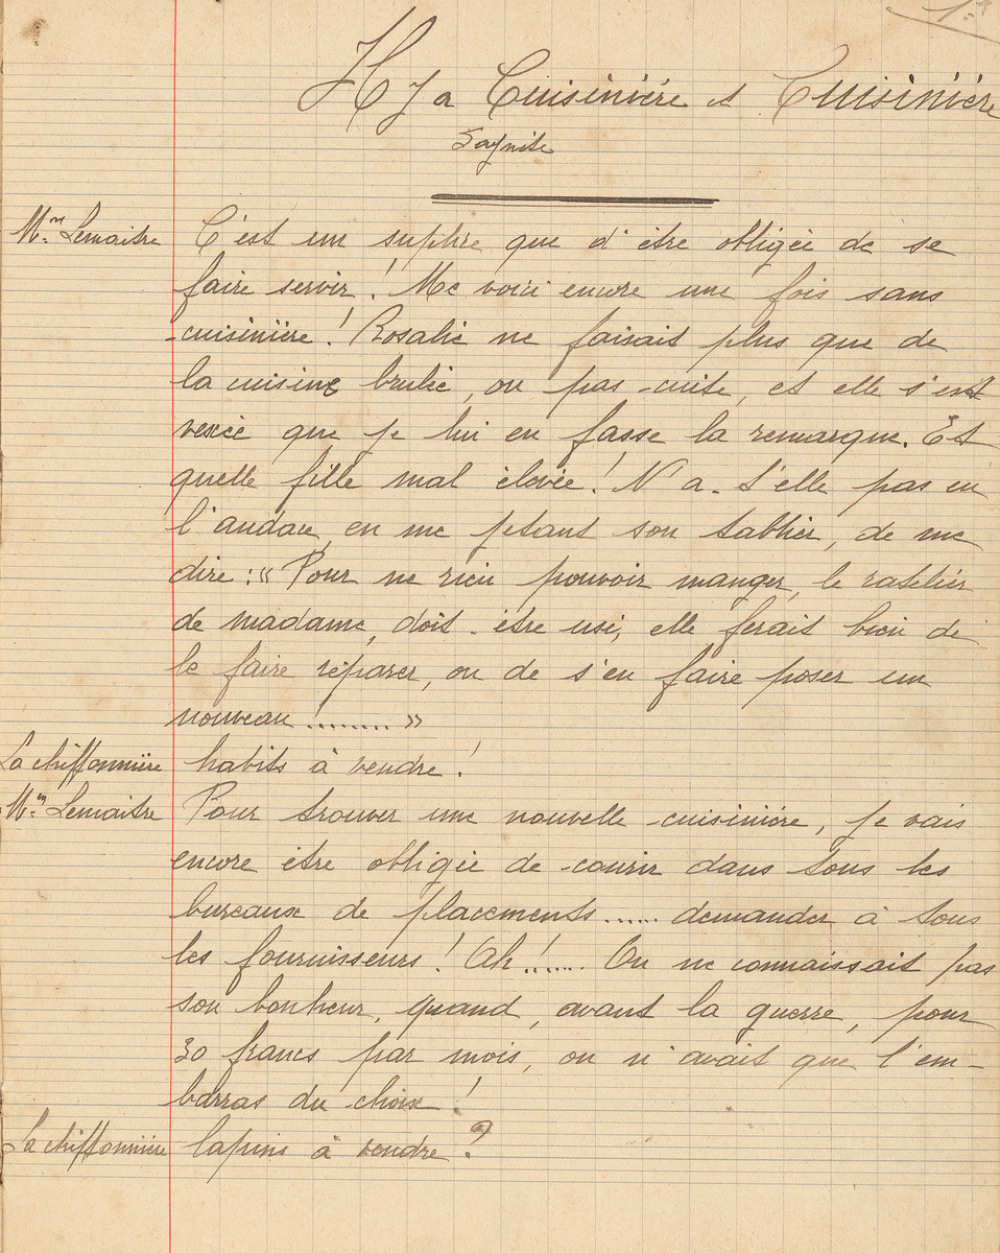 1.
Il y a Cuisinière et Cuisinière
Saynite
Mme Lemaitre C'est un suplice que d'être obligée de se
faire servir! Me voici encore une fois sans
cuisinière! Rosalie ne faisait plus que de
la cuisine brulée, ou pas cuite, et elle s'est
vexée que je lui en fasse la remarque. Et
quelle fille mal élevée! N'a-t'elle pas eu
l'audace, en me jetant son tablier, de me
dire: « Pour ne rien pouvoir manger, le ratelier
de madame, doit-être usé, elle ferait bien de
le faire réparer, ou de s'en faire poser un
nouveau ......... »
La chiffonnière habits à vendre!
Mme Lemaitre Pour trouver une nouvelle cuisinière, je vais
encore être obligée de courir dans tous les
bureaux de placements...... demander à tous
les fournisseurs! Ah!...... On ne connaissait pas
son bonheur, quand, avant la guerre, pour
30 francs par mois, on n'avait que l'em-
barras du choix!
La chiffonnière lapins à vendre?